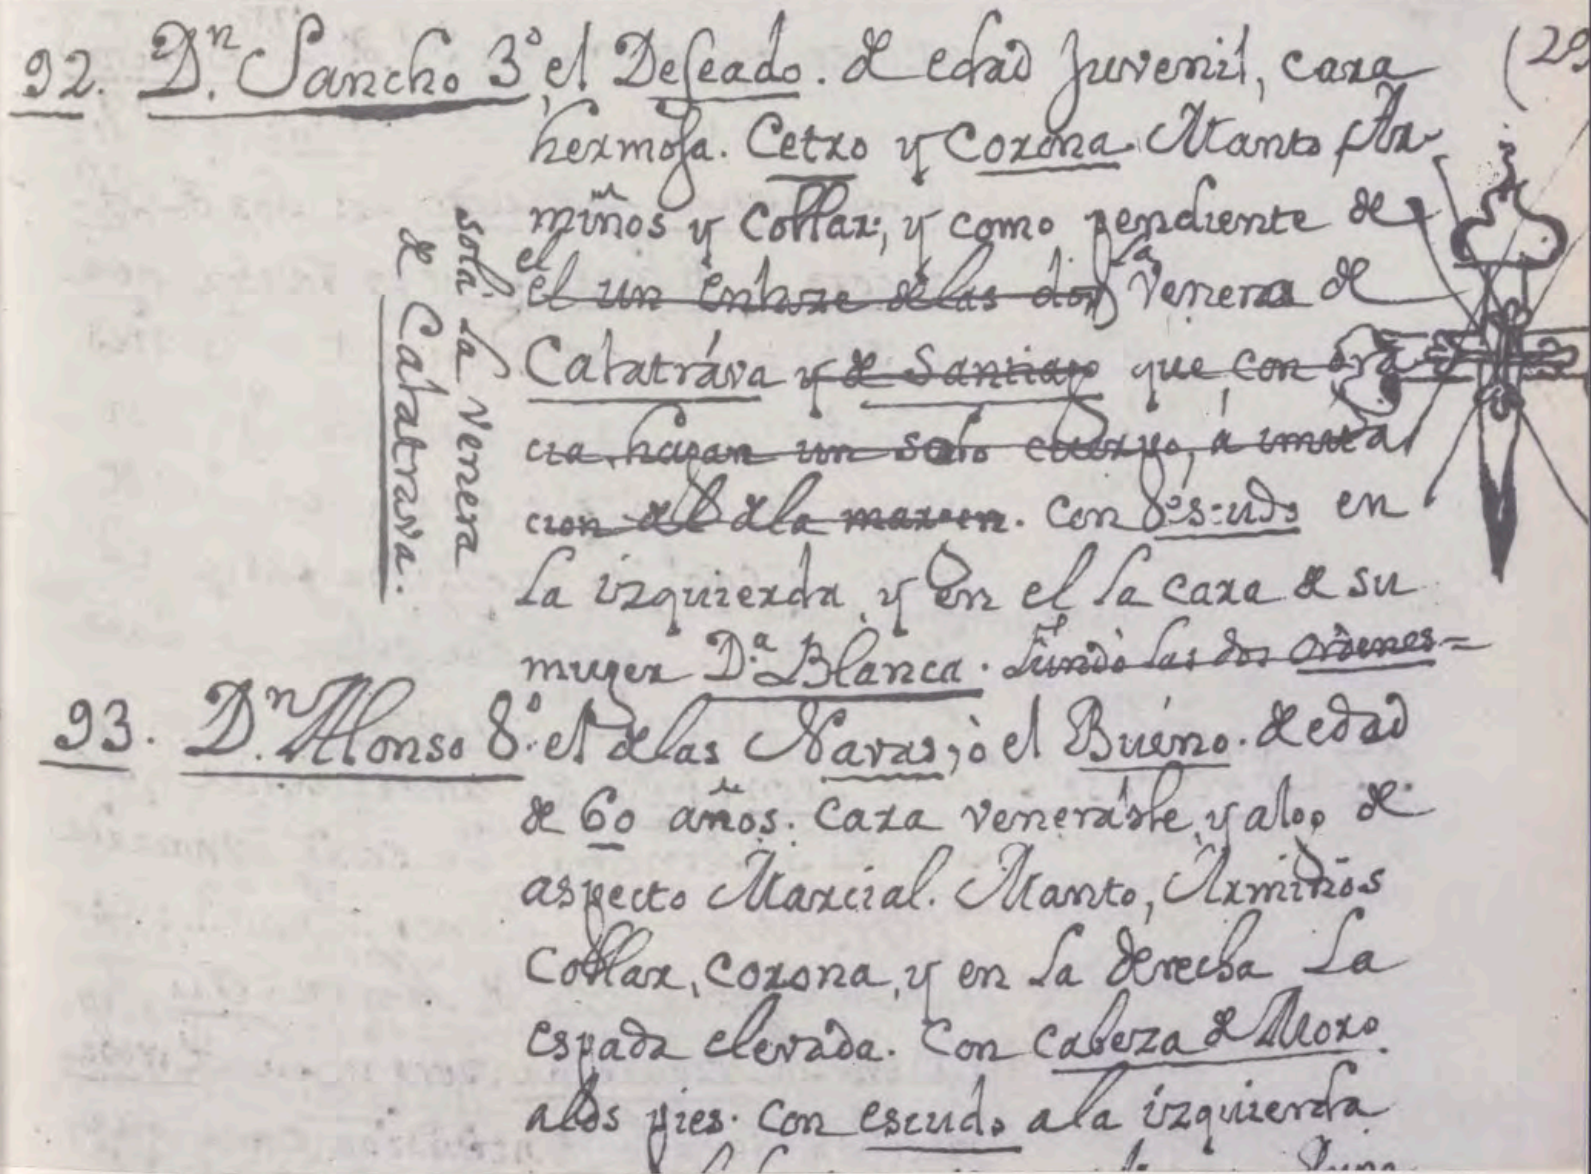 (29
92. Dn. Sancho 3º el Deseado. de edad Juvenil, cara
hermosa. Cetro y Corona. Manto, Ar-
miños y Collar; y como pendiente de
el
el un enlaze de las dos la Venera de
Catatráva y de Santiago que con gra
cia hagan un solo cuerpo, á imita
cion del de la margen. Con Escudo en
la izquierda, y en el la cara de su
muger Dª. Blanca. Fundó las dos ordenes=
sola la Venera
de Catatrava.
93. Dn. Alonso 8º. el de las Navas, ò el Bueno. de edad
de 60 años. Cara venerable, y algo de
aspecto Marcial. Manto, Armiños
Collar, corona, y en la derecha la
espada elevada. Con cabeza de Moro
a los pies. Con escudo a la izquierda